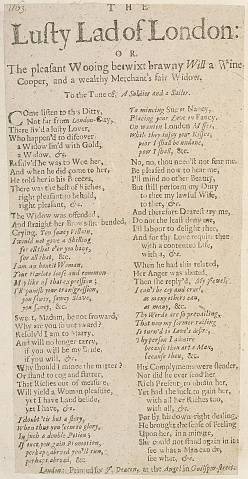 THE
Lusty Lad of London:
OR,
The pleasant Wooing betwixt brawny Will a Wine
Cooper, and a wealthy Merchant's fair Widow.
To the Tune of, A Soldier and a Sailor.
COme listen to this Ditty,
Not far from London-
There liv'd a lusty Lover,
Who happen'd to discover
a Widow lin'd with Gold,
a Widow, &c.
Resolv'd he was to Woe her,
And when he did come to her,
He told her in his Breece,
There was the best of Riches,
right pleasant to behold,
right pleasant, &c.
The Widow was offended,
And straight her Brow she bended,
Crying, You saucy Fellow,
I would not give a shilling
for all that e'er you have,
for all that, &c.
I am an honest Woman,
Your loose and common
My like of that expression;
I'll punish your transgression,
you sawcy, Slave,
you sawcy, &c.
Sweet Madam, be not froward,
Why are you so untoward?
Resolv'd I am to Marry,
And will no longer tarry,
if you will be my Bride,
if you will, &c.
Why should I mince the matter?
Or stand to cog and flatter,
That Riches out of measure,
Will yield a Woman pleasure,
yet I have Land beside,
yet I have, &c.
I doubt 'tis but a story,
When that you seem to glory,
In such a double Potion;
If once you gain
perhaps abroad you'll run,
perhaps abroad, &c.
To mincing Sue or Nancy,
Placing your Love or Fancy,
On wanton London Misses,
While they enjoy your Kisses,
poor I shall be undone,
poor I shall, &c.
No, no, thou need'st not fear me,
Be pleased now to hear me,
I'll mind no other beauty,
But still perform my Duty
to thee my lawful Wife,
to thee, &c.
And therefore Dearest try me,
Do not the least deny me,
I'll labour to delight thee,
And for thy Love requite thee
with a contented Life,
with a, &c.
When he had this related,
Her Anger was abated,
Then she reply'd, My Jewel,
I can't be coy and cruel
as many others can,
as many, &c.
Thy Words are so prevailing,
That now my former railing
Is turn'd to Love's desire,
Thy person I admire
because thou art a Man,
because thou, &c.
His Complements were slender,
Nor did he ever tend her
Rich Present, to obtain her,
Yet had she luck to gain her,
with all her Riches too,
with all, &c.
For by his down-right dealing,
He brought the sense of Feeling
Upon her, in a minute,
She could not stand again in it:
see what a Man can do,
see what, &c.
London: Printed for J. Deacon, at the Angel in Guiltspur-street.